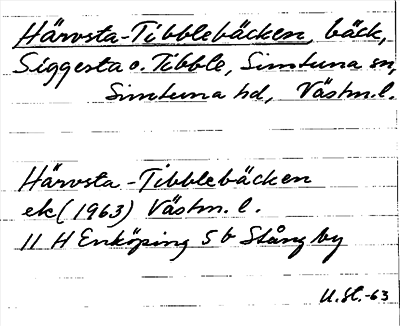 Härvsta-Tibblebäcken, bäck,
Siggesta o. Tibble, Simtuna sn,
Simtuna hd, Västm.l.
Härvsta-Tibblebäcken
ek (1963) Västm. l.
11 H Enköping 5 b Stångby
U.St.-63